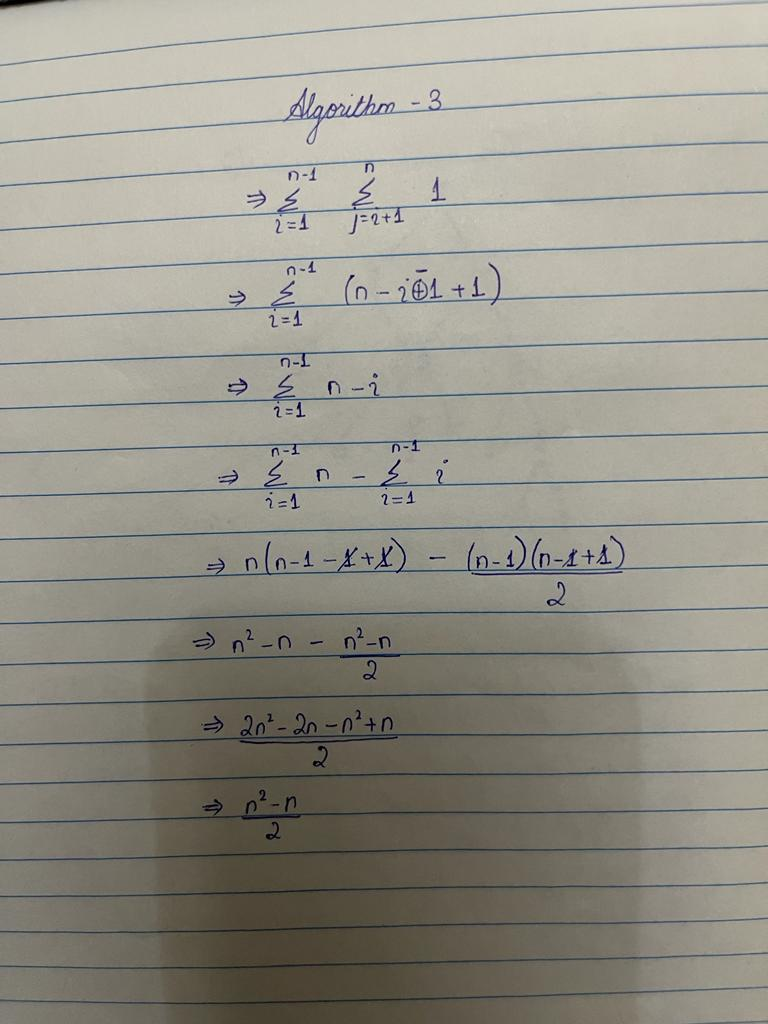 Algorithm - 3
⇒ ∑_{i=1}^{n-1} ∑_{j=i+1}^{n} 1
⇒ ∑_{i=1}^{n-1} (n - i - 1 + 1)
⇒ ∑_{i=1}^{n-1} n - i
⇒ ∑_{i=1}^{n-1} n - ∑_{i=1}^{n-1} i
⇒ n(n-1-1+1) - (n-1)(n-1+1)/2
⇒ n² - n - (n²-n)/2
⇒ (2n² - 2n - n² + n)/2
⇒ (n² - n)/2